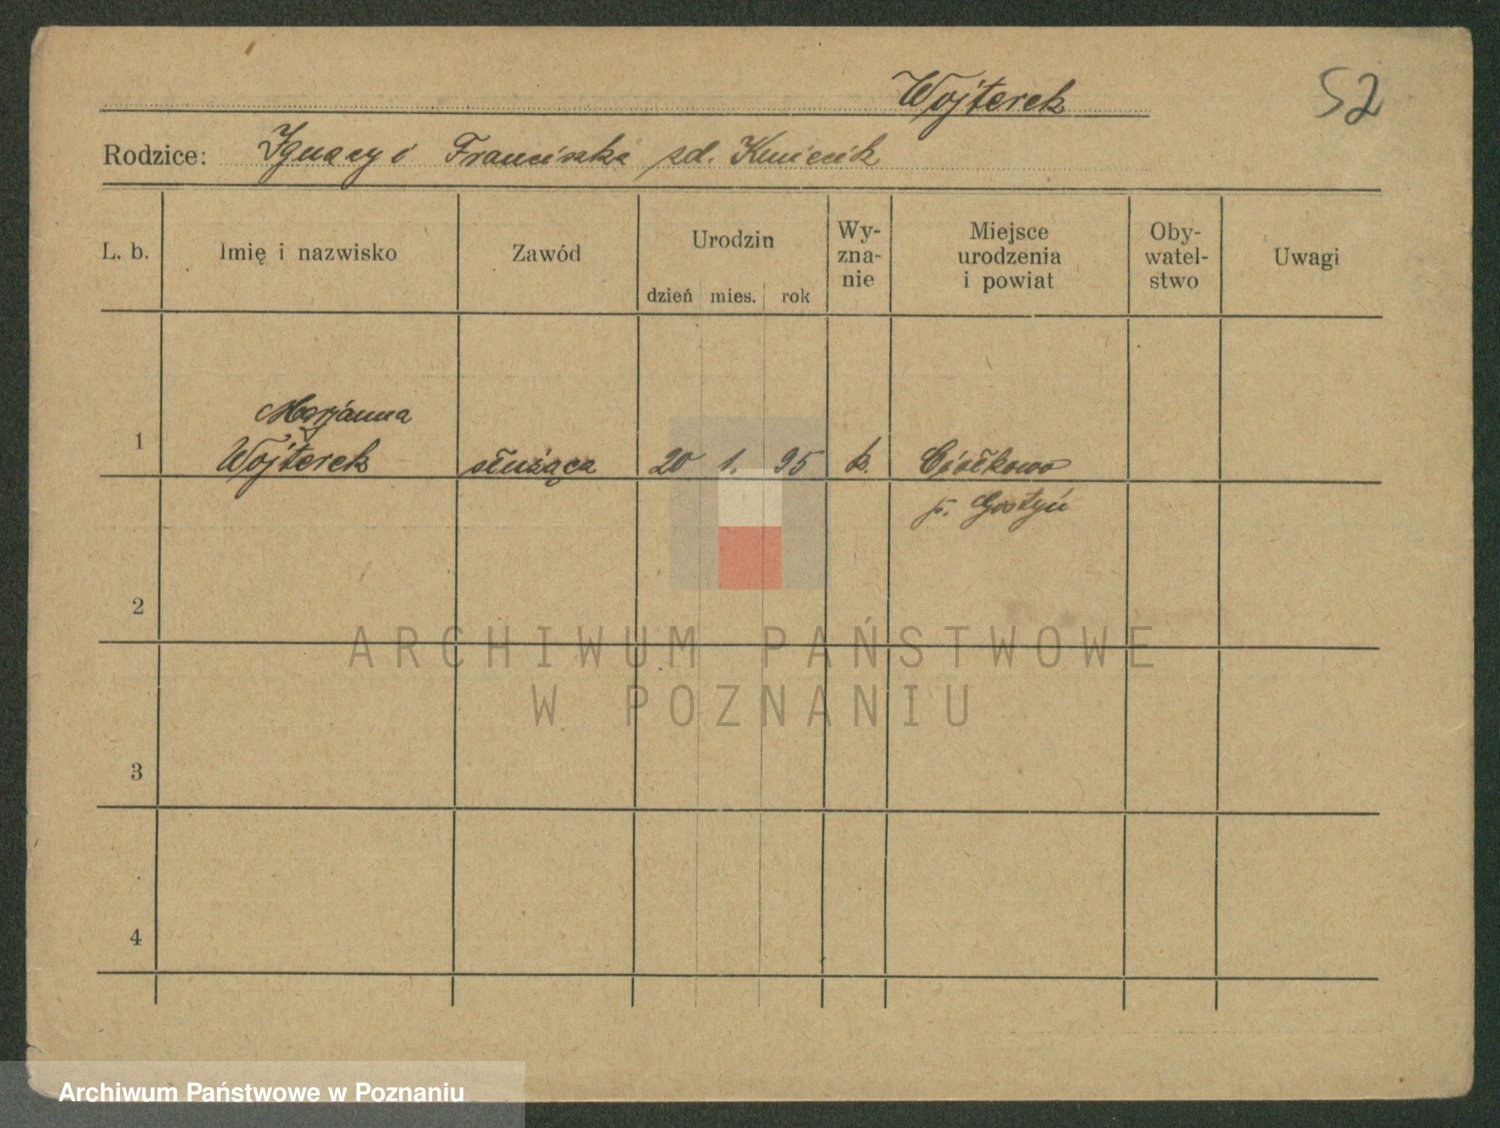 Wojterek
52
Rodzice: Ignacy i Franciszka zd. Kmiecik
L. b.
Imię i nazwisko
Zawód
Urodzin
dzień mies. rok
Wy-
zna-
nie
Miejsce
urodzenia
i powiat
Oby-
watel-
stwo
Uwagi
Marjanna
1 Wojterek służąca 20 1. 95 k. Ciołkowo
p. Gostyń
2
ARCHIWUM PAŃSTWOWE
W POZNANIU
3
4
Archiwum Państwowe w Poznaniu